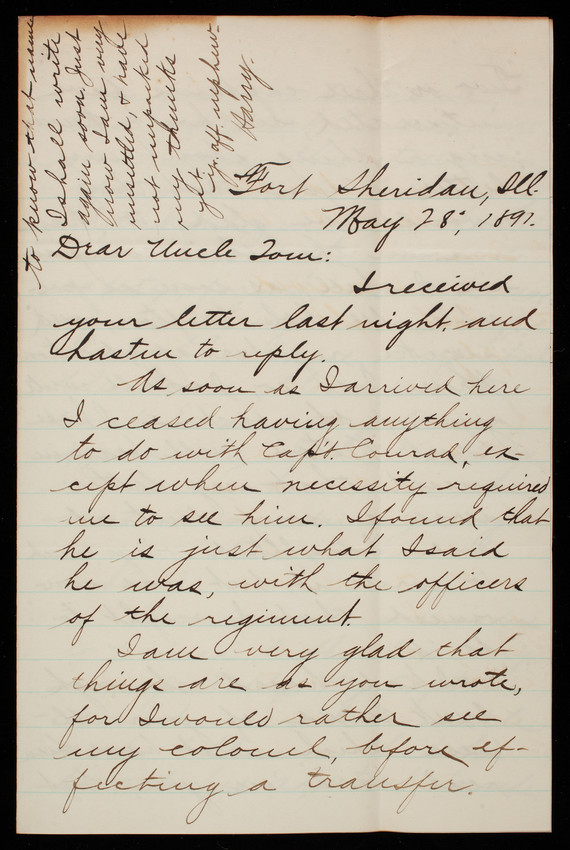 to know that name
I shall write
again soon. Just
now I am very
unsettled, & have
not unpacked
my trunks
yet.
Yr. aff. nephew
Harry.
Fort Sheridan, Ill.
May 28", 1891.
Dear Uncle Tom:
I received
your letter last night, and
hasten to reply.
As soon as I arrived here
I ceased having anything
to do with Capt. Conrad, ex-
cept when necessity required
me to see him. I found that
he is just what I said
he was, with the officers
of the regiment.
I am very glad that
things are as you wrote,
for I would rather see
my colonel, before ef-
fecting a transfer.